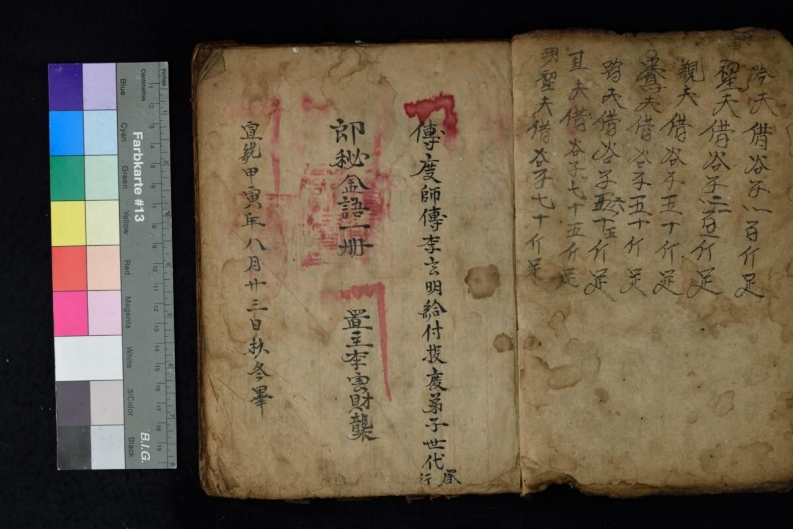 Farbkarte #13
B.I.G.
Centimetres
Inches
Blue
Cyan
Green
Yellow
Red
Magenta
White
3/Color
Black
借谷子一百斤足
聖夫借谷子二百斤足
觀夫借谷子五十斤足
夫借谷子五十斤足
夫借谷子五十斤足
夫借谷子七十五斤足
明聖夫借谷子七十斤足
傳度師傳李玄明給付投度弟子世代承行
郎秘金語一册
置主李雲財襲
宣統甲寅年八月廿三日抄冬畢